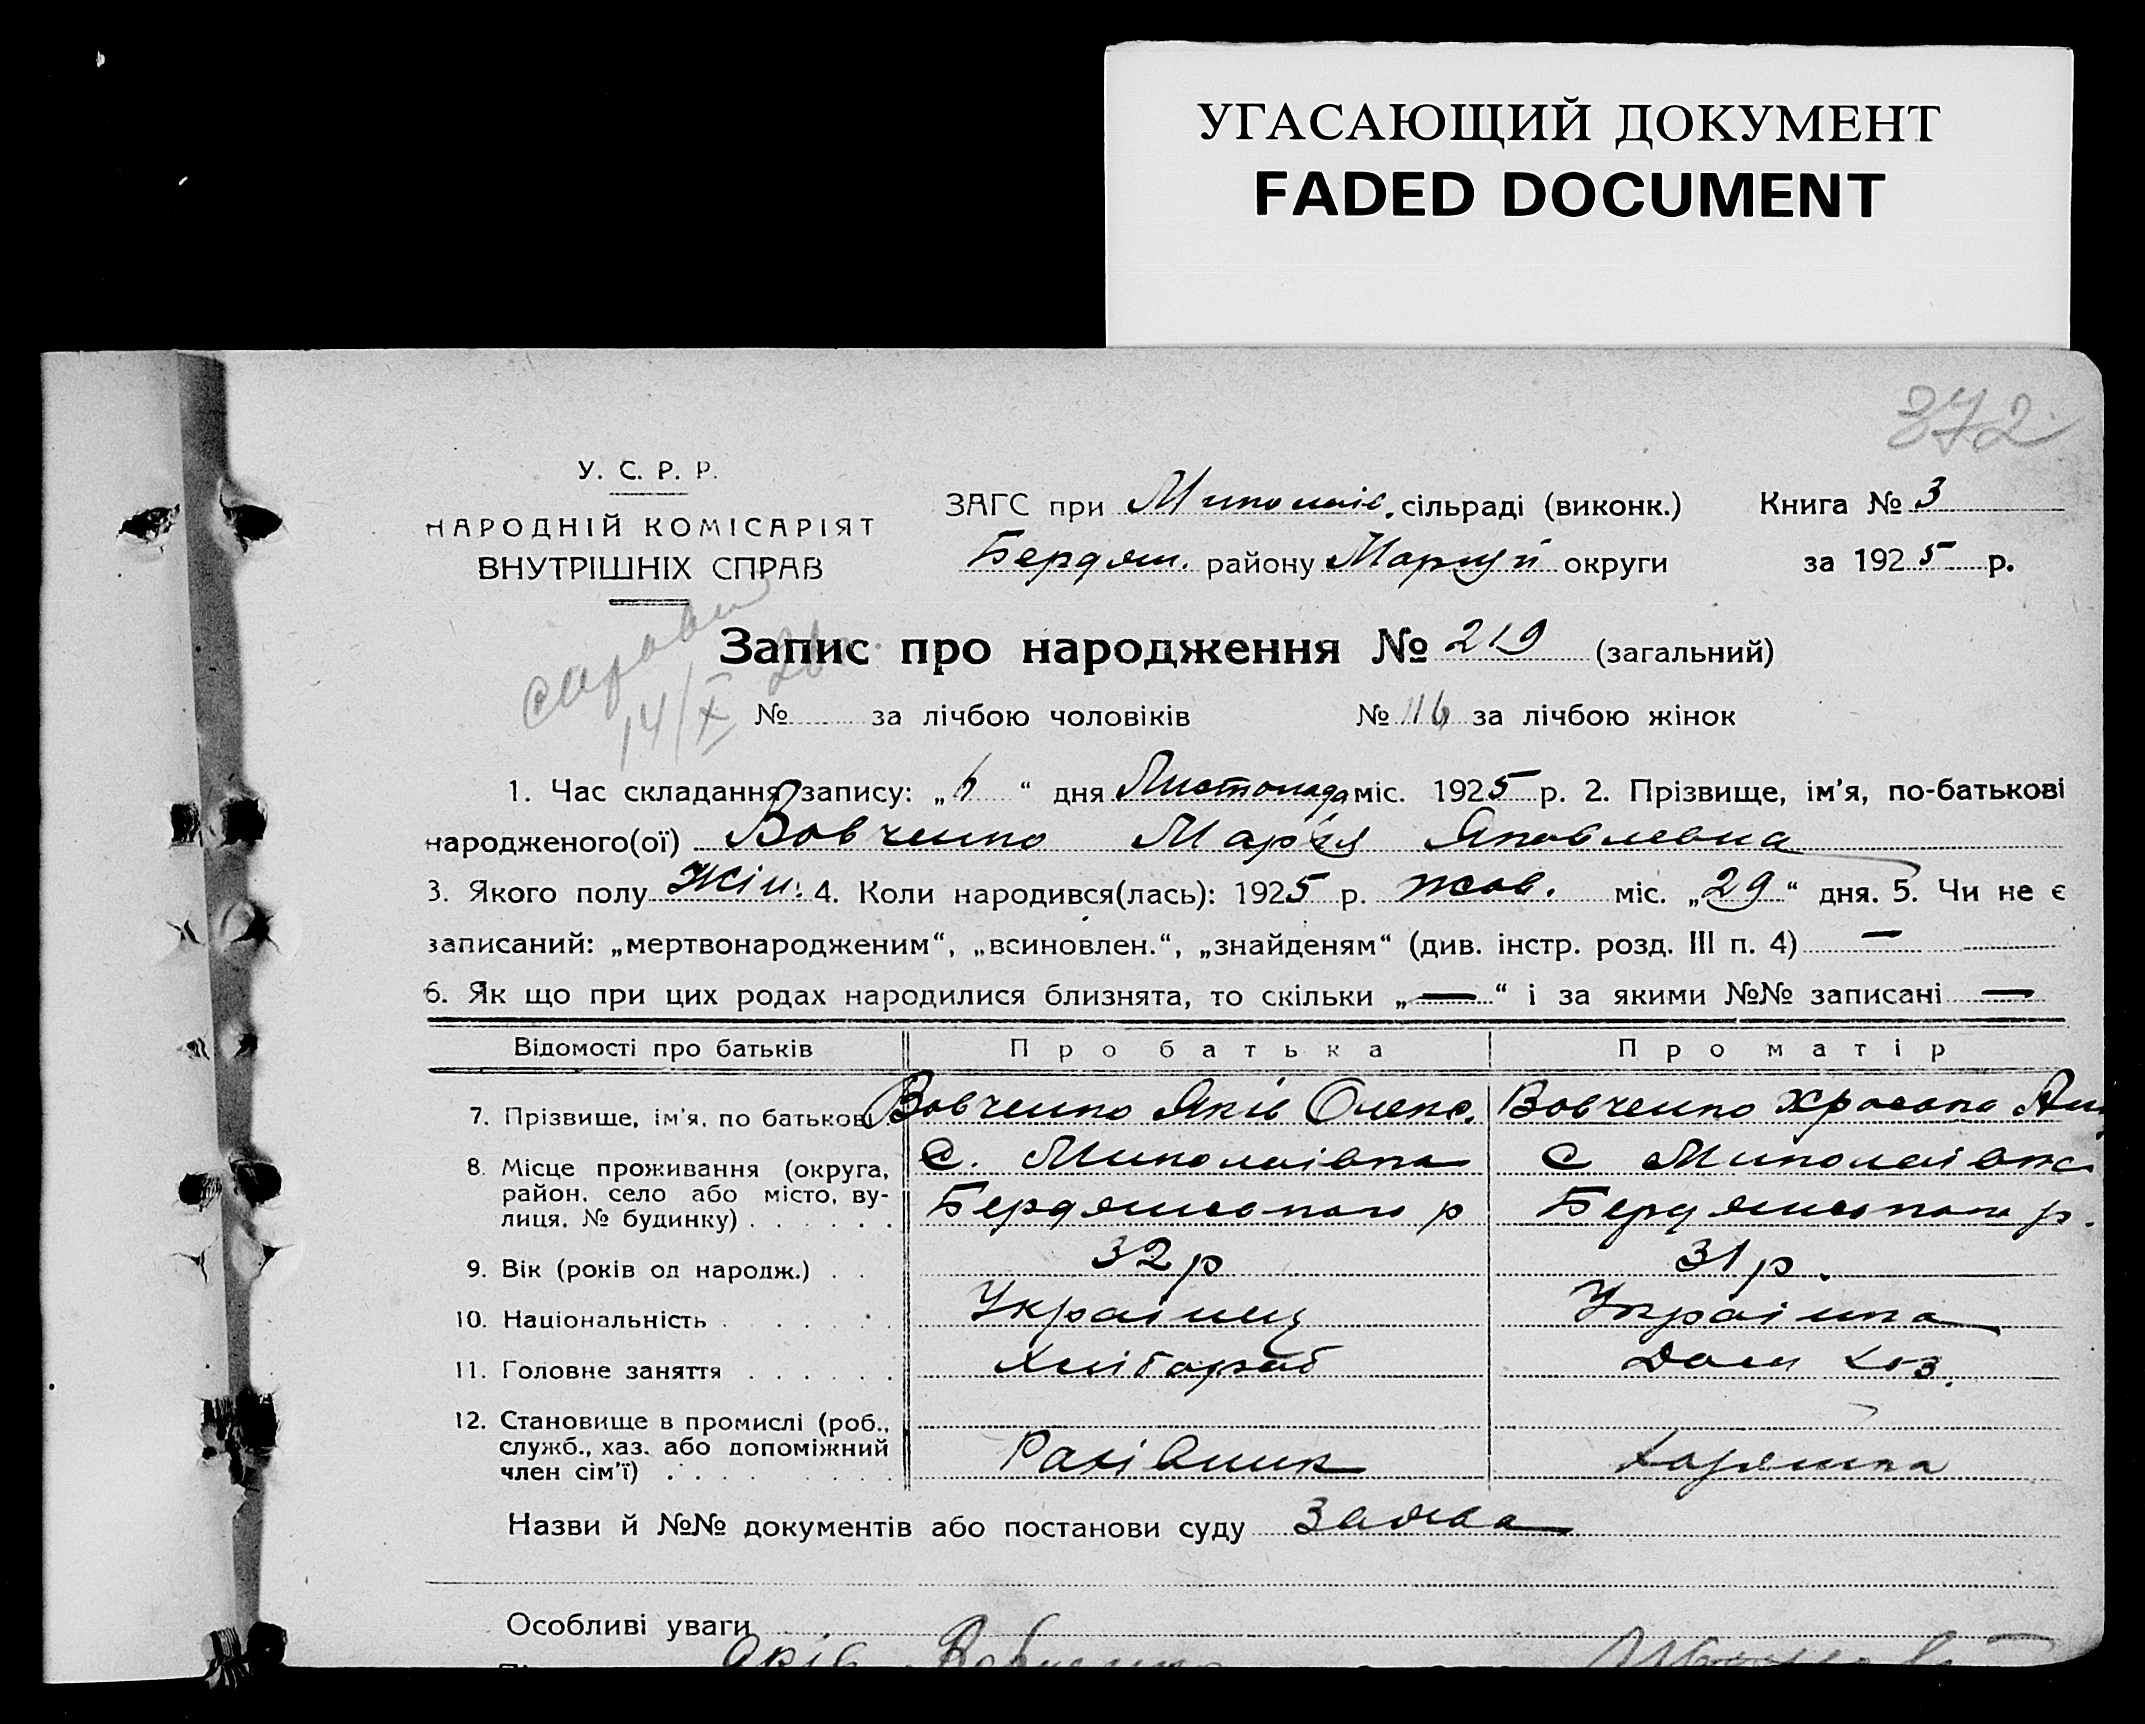 УГАСАЮЩИЙ ДОКУМЕНТ
FADED DOCUMENT
372
У. С. Р. Р.
НАРОДНІЙ КОМІСАРІЯТ
ВНУТРІШНІХ СПРАВ
ЗАГС при Миколаів. сільраді (виконк.) Книга № 3
Бердян. району Маріуп округи за 1925 р.
Запис про народження № 219 (загальний)
14/X 26
№ за лічбою чоловіків № 116 за лічбою жінок
1. Час складання запису: „6“ дня Листопада міс. 1925 р. 2. Прізвище, ім'я, по-батькові
народженого(ої) Вовченко Мар'я Яковлевна
3. Якого полу Жін. 4. Коли народився(лась): 1925 р. жов. міс. „29“ дня. 5. Чи не є
записаний: „мертвонародженим“, „всиновлен.“, „знайденям“ (див. інстр. розд. III п. 4) —
6. Як що при цих родах народилися близнята, то скільки „—“ і за якими №№ записані —
Відомості про батьків Про батька Про матір
7. Прізвище, ім'я, по батькові Вовченко Яків Олекс. Вовченко
8. Місце проживання (округа, район, село або місто, ву-лиця, № будинку) . . . . . .
С. Миколаівка С Миколаівка
Бердянського р Бердянського р.
9. Вік (років од народж.) . . 32 р 31 р.
10. Національність . . . . . . Украінец Украінка
11. Головне заняття . . . . . . Хлібороб Дом хоз.
12. Становище в промислі (роб.,
служб., хаз. або допоміжний
член сім'ї) . . . . . . . .
Назви й №№ документів або постанови суду Заява
Особливі уваги
Яків Вовченко